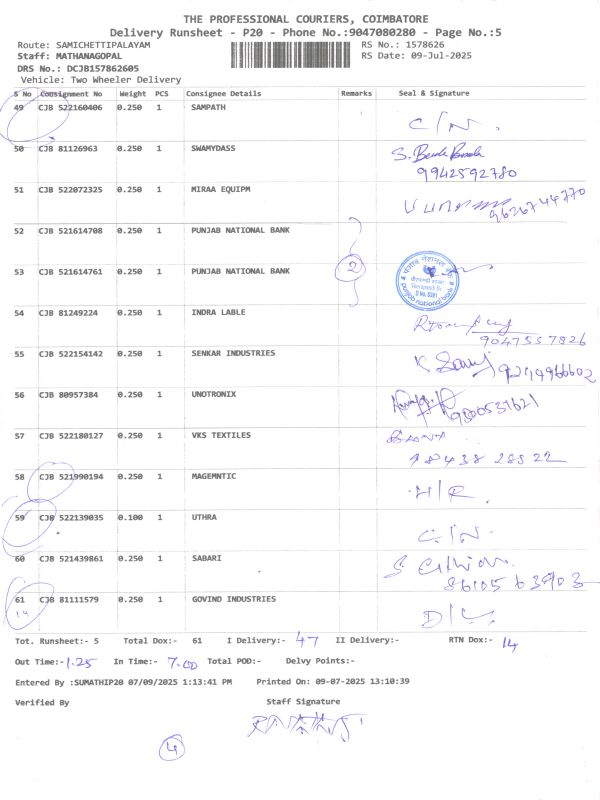 THE PROFESSIONAL COURIERS, COIMBATORE
Delivery Runsheet - P20 - Phone No.:9047080280 - Page No.:5
Route: SAMICHETTIPALAYAM RS No.: 1578626
Staff: MATHANAGOPAL RS Date: 09-Jul-2025
DRS No.: DCJB157862605
Vehicle: Two Wheeler Delivery
S No Consignment No Weight PCS Consignee Details Remarks Seal & Signature
49 CJB 522160406 0.250 1 SAMPATH
C/N.
50 CJB 81126963 0.250 1 SWAMYDASS
9942592780
51 CJB 522072325 0.250 1 MIRAA EQUIPM
9626744770
52 CJB 521614708 0.250 1 PUNJAB NATIONAL BANK
53 CJB 521614761 0.250 1 PUNJAB NATIONAL BANK 2
punjab national bank
54 CJB 81249224 0.250 1 INDRA LABLE
9047557826
55 CJB 522154142 0.250 1 SENKAR INDUSTRIES
56 CJB 80957384 0.250 1 UNOTRONIX
9500531621
57 CJB 522180127 0.250 1 VKS TEXTILES
98438 28522
58 CJB 521990194 0.250 1 MAGEMNTIC
H/R.
59 CJB 522139035 0.100 1 UTHRA
C/N.
60 CJB 521439861 0.250 1 SABARI
8610563903
61 CJB 81111579 0.250 1 GOVIND INDUSTRIES
14
D/L.
Tot. Runsheet:- 5 Total Dox:- 61 I Delivery:- 47 II Delivery:- RTN Dox:- 14
Out Time:- 1.25 In Time:- 7.00 Total POD:- Delvy Points:-
Entered By :SUMATHIP20 07/09/2025 1:13:41 PM Printed On: 09-07-2025 13:10:39
Verified By Staff Signature
4